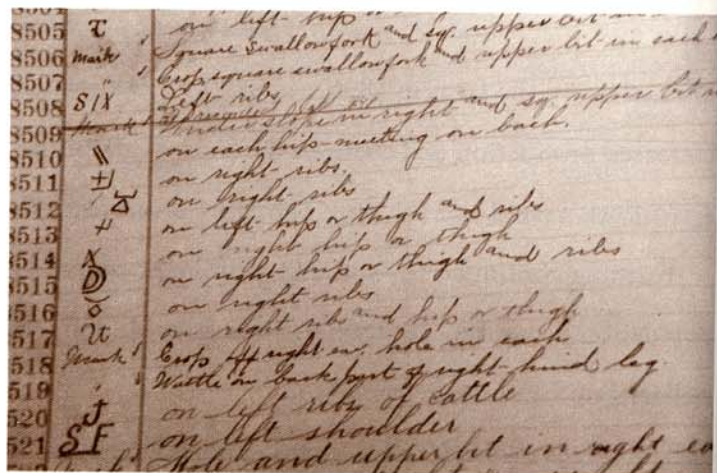 8505 T on left hip
8506 Mark " Square swallowfork and sq. upper bit in
8507 " " Crop square swallowfork and upper bit in each
8508 SIX Left ribs
8509 Mark Underslope in right and sq. upper bit
8510 \\ on each hip meeting on back.
8511 on right ribs
8512 on right ribs
8513 on left hip or thigh and ribs
8514 X on right hip or thigh
8515 D on right hip or thigh and ribs
8516 on right ribs
8517 U on right ribs and hip or thigh
8518 Mark " Crop off right ear, hole in each
519 " " Wattle on back part of right hind leg
520 J on left ribs of cattle
521 SF on left shoulder
Hole and upper bit in right